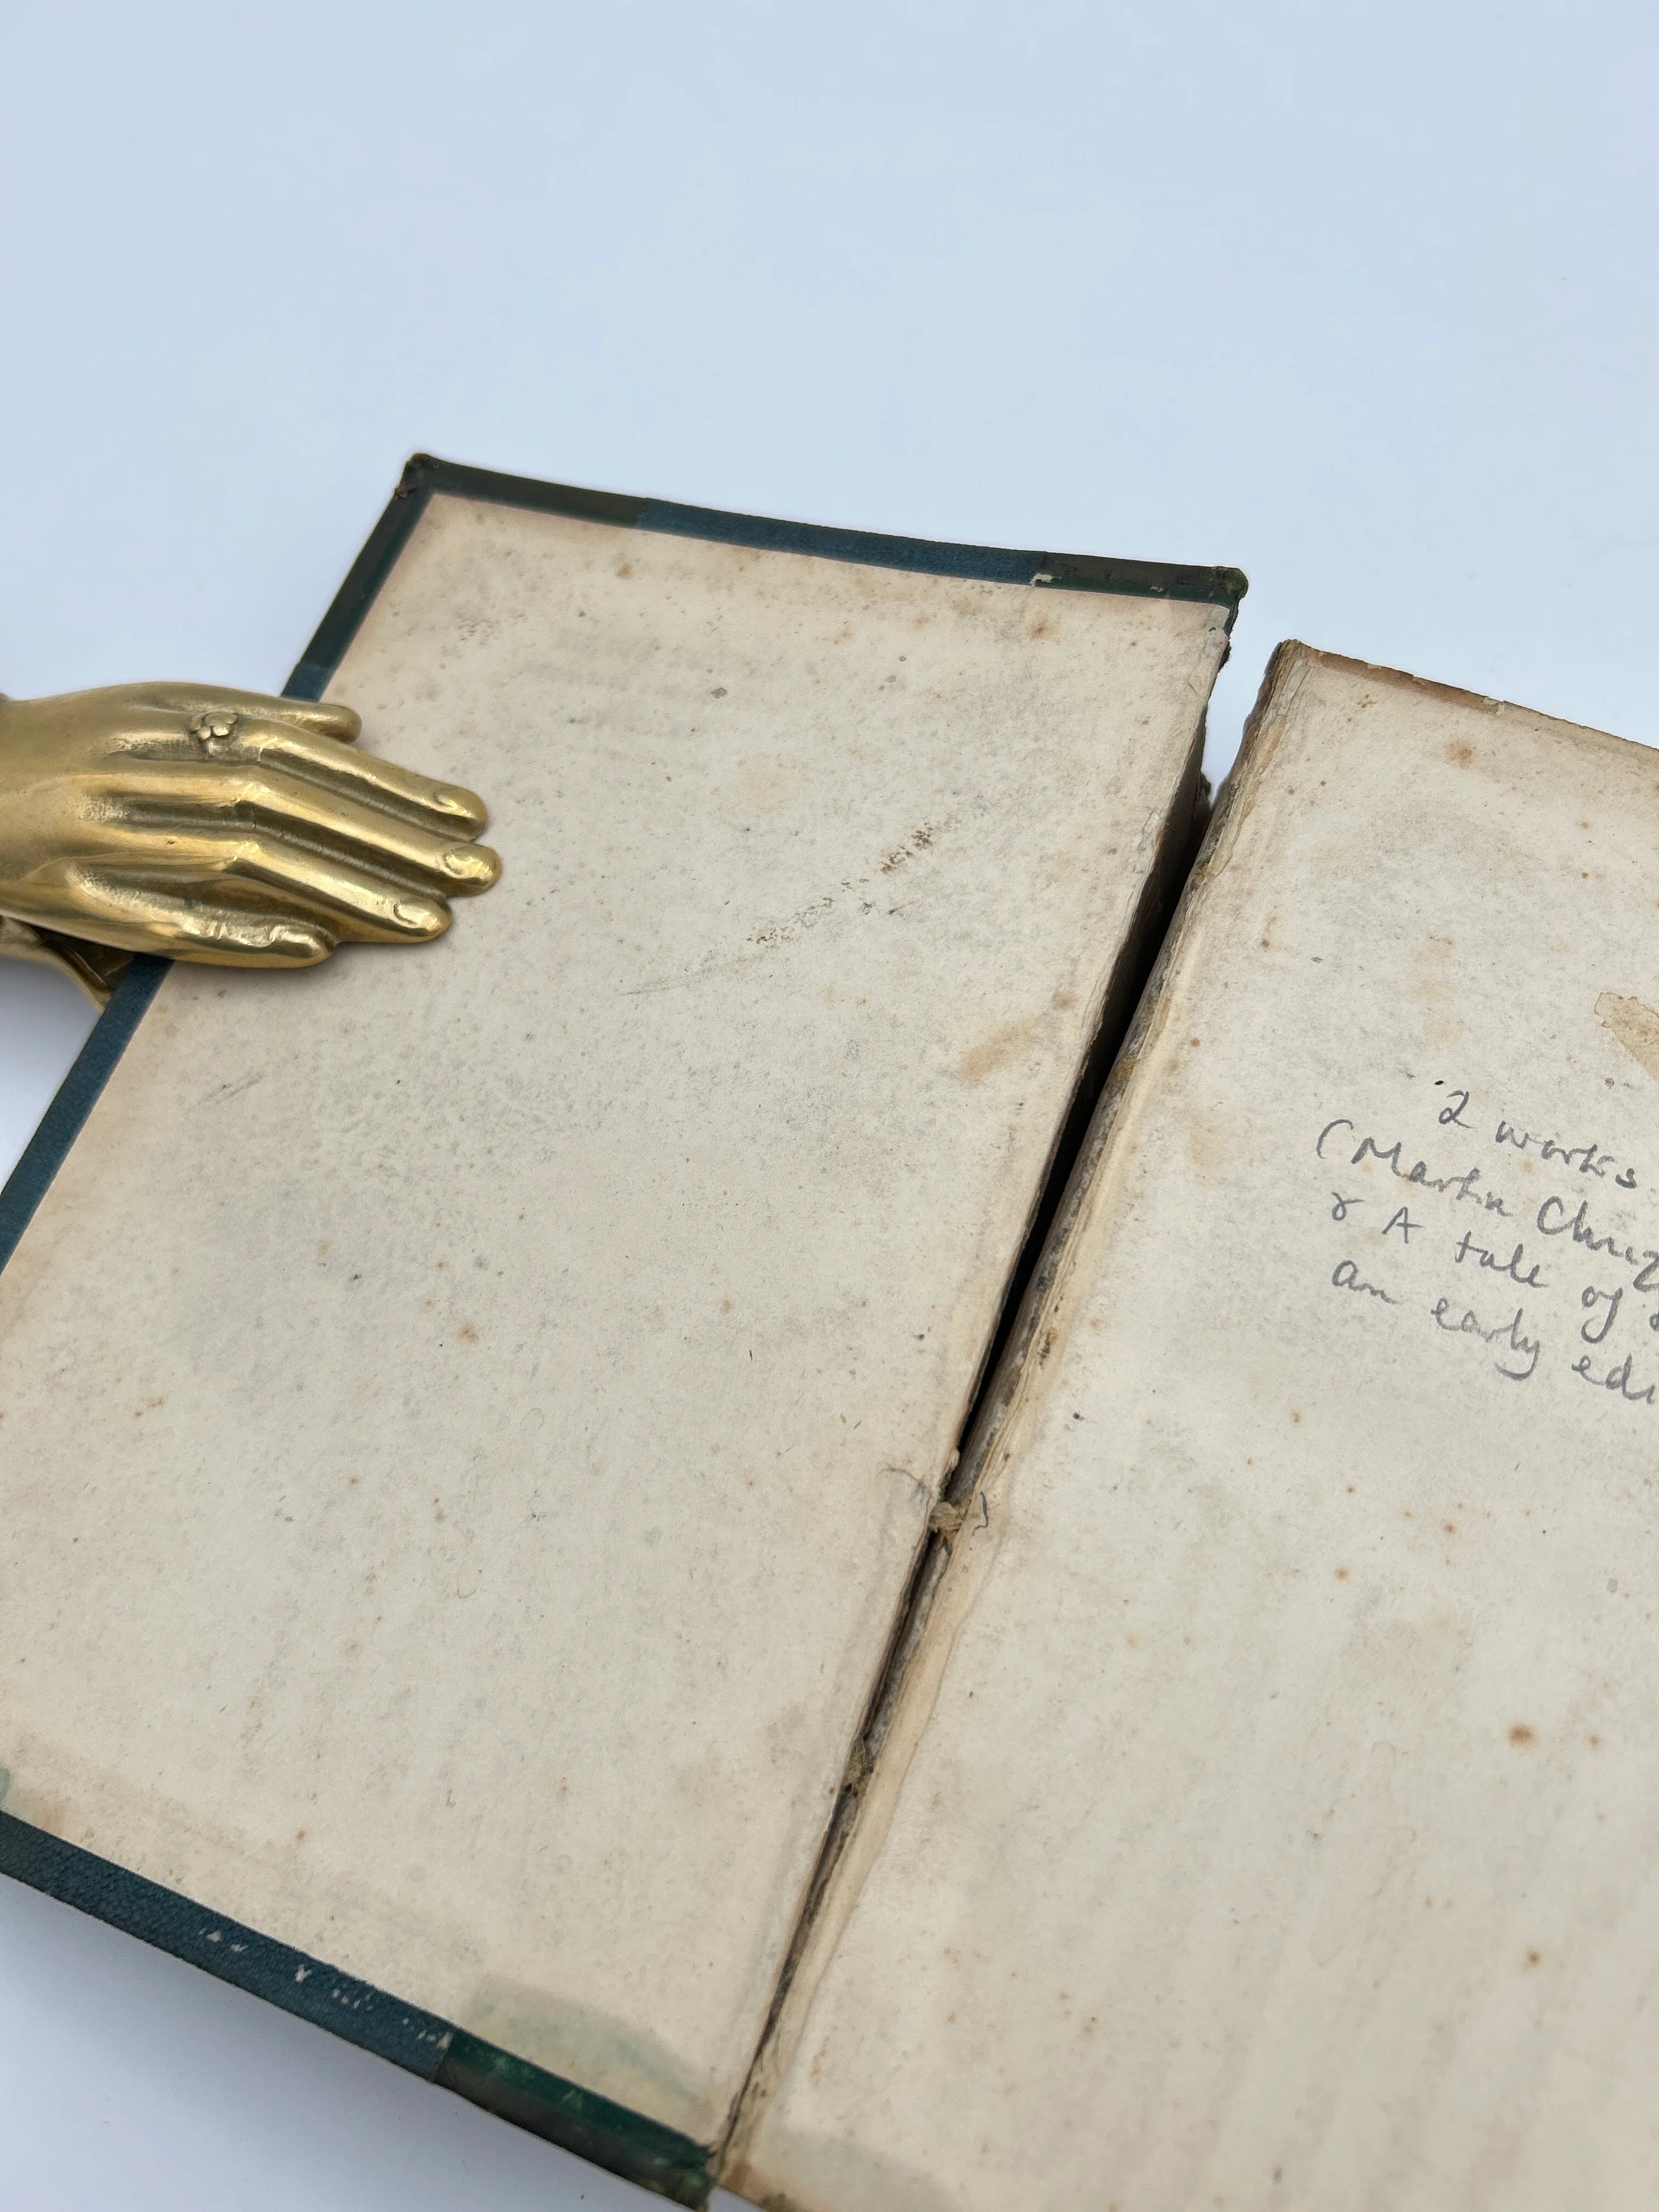 2 works
(Martin Chuz
& A tale of
an early edi